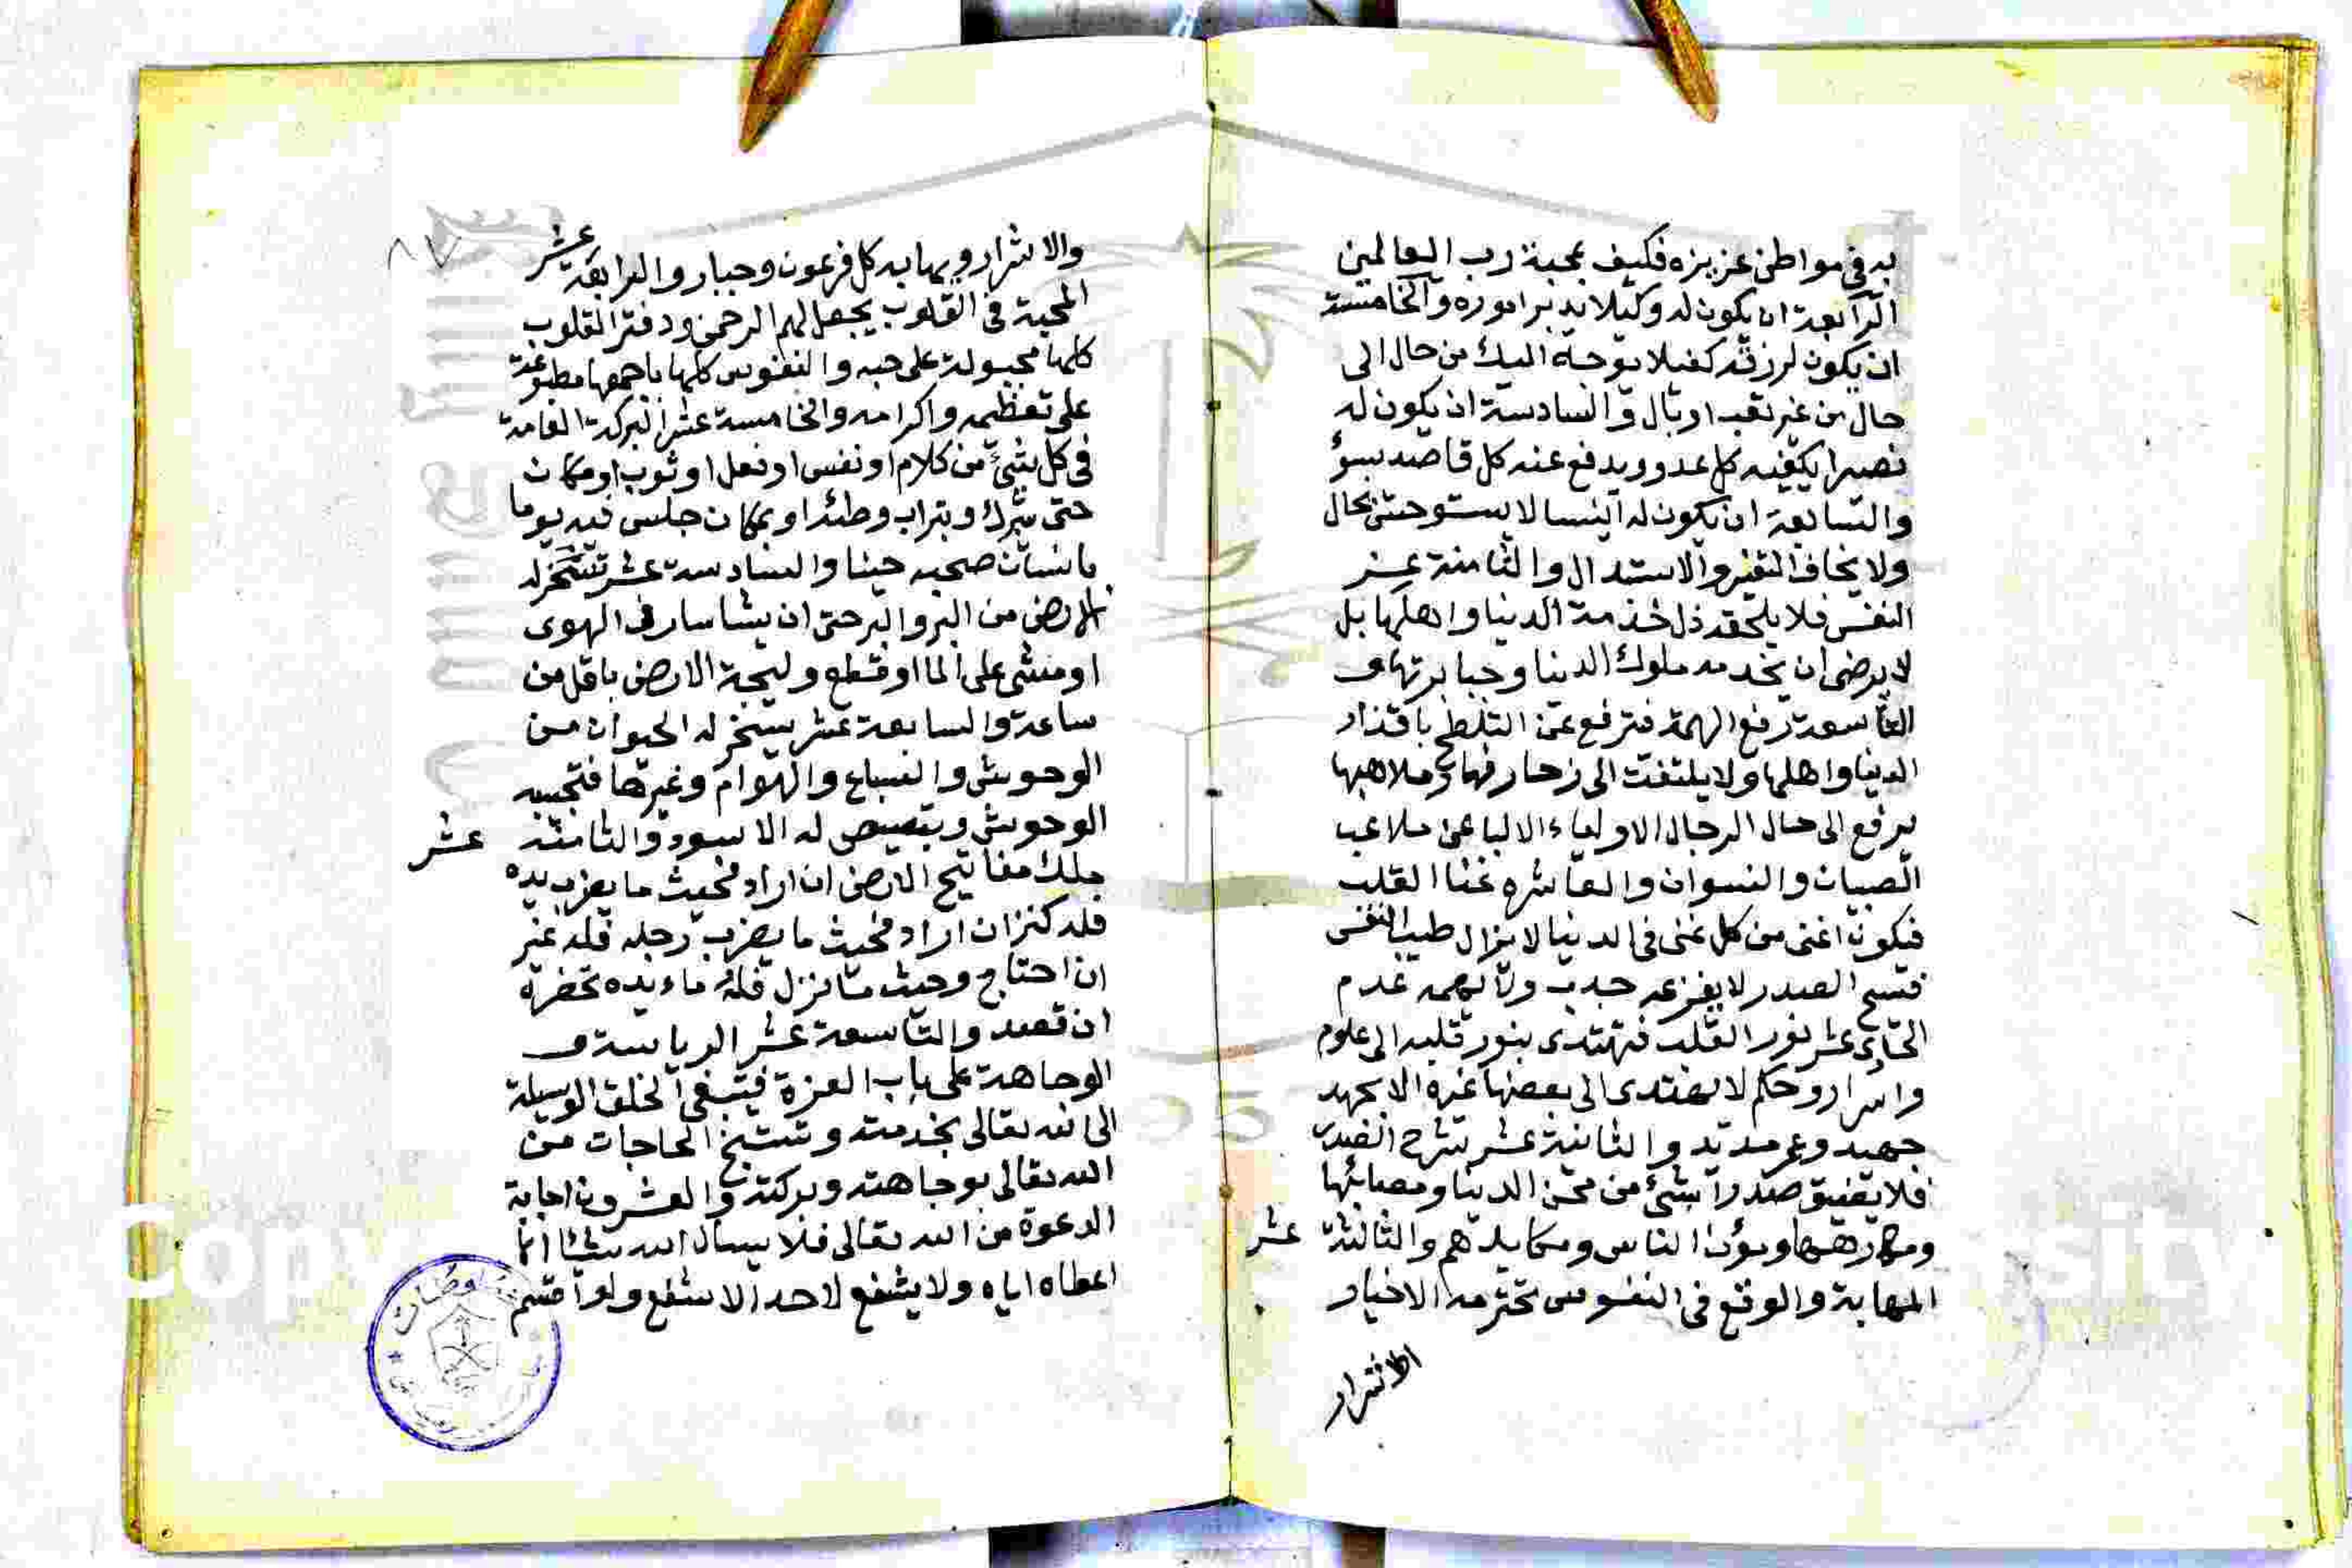 به في مواطن عزيزه فكيف بمحبة رب العالمين
الرابعة ان يكون له وكيلا يدبر اموره والخامسة
ان يكون لرزقه كفيلا يوجه اليك من حال الى
حال من غير تعب او بال والسادسة ان يكون له
نصيرا يكفيه كل عدو ويدفع عنه كل قاصد بسؤ
والسابعة ان يكون له انيسا لا يستوحش بحال
ولا يخاف التغير والاستبدال والثامنة عز
النفس فلا يلحقه ذل خدمة الدنيا واهلها بل
لا يرضى ان يخدمه ملوك الدنيا وجبابرتها و
التاسعة رفع الهمة فترفع عن التلطخ باقذار
الدنيا واهلها ولا يلتفت الى زخارفها وملاهيها
يرفع الى حال الرجال الاولياء الالبا عن ملاعب
الصبيان والنسوان والعاشره غنا القلب
فيكون اغنى من كل غنى في الدنيا لا يزال طيب النفس
فسيح الصدر لا يفزعه جدب ولا يهمه عدم
الحادي عشر نور القلب فيهتدى بنور قلبه الى علوم
واسرار وحكم لا يهتدى الى بعضها غيره الا بجهد
جهيد وعمر مديد والثانية عشر شرح الصدر
فلا يضيق صدرا بشئ من محن الدنيا ومصائبها
ومكارهها ومؤن الناس ومكايدهم والثالثة عشر
المهابة والوقع في النفوس تحترمه الاخيار
الاشرار
٨٧
والاشرار ويهابه كل فرعون وجبار والرابعة عشر
المحبة في القلوب يجعل لهم الرحمن ود فترا القلوب
كلها مجبولة على حبه والنفوس كلها باجمعها مطبوعة
على تعظيمه واكرامه والخامسة عشر البركة العامة
في كل شئ من كلام او نفس او فعل او ثوب او مكان
حتى يتبرك وبتراب وطئه او بمكان جلس فيه يوما
بانسان صحبه حينا والسادسة عشر تسخر له
الارض من البر والبر حتى ان يشا سار في الهوى
او مشى على الما او قطع وليجة الارض باقل من
ساعة والسابعة عشر يسخر له الحيوان من
الوحوش والسباع والهوام وغيرها فتجيبه
الوحوش ويبصبص له الاسود والثامنة عشر
ملك مفاتيح الارض ان اراد فحيث ما يضرب يده
فله كنز ان اراد فحيث ما يضرب رجله فله عين
ان احتاج وحيث ما نزل فله مايده تحضره
ان قصد والتاسعة عشر الرياسة و
الوجاهة على باب العزة فيبتغى الخلق الوسيلة
الى الله تعالى بخدمته وتستنجح الحاجات من
الله تعالى بوجاهته وبركته والعشرون اجابة
الدعوة من الله تعالى فلا يسال الله شئا انما
اعطاه اياه ولا يشفع لاحد الا شفع ولو اقسم